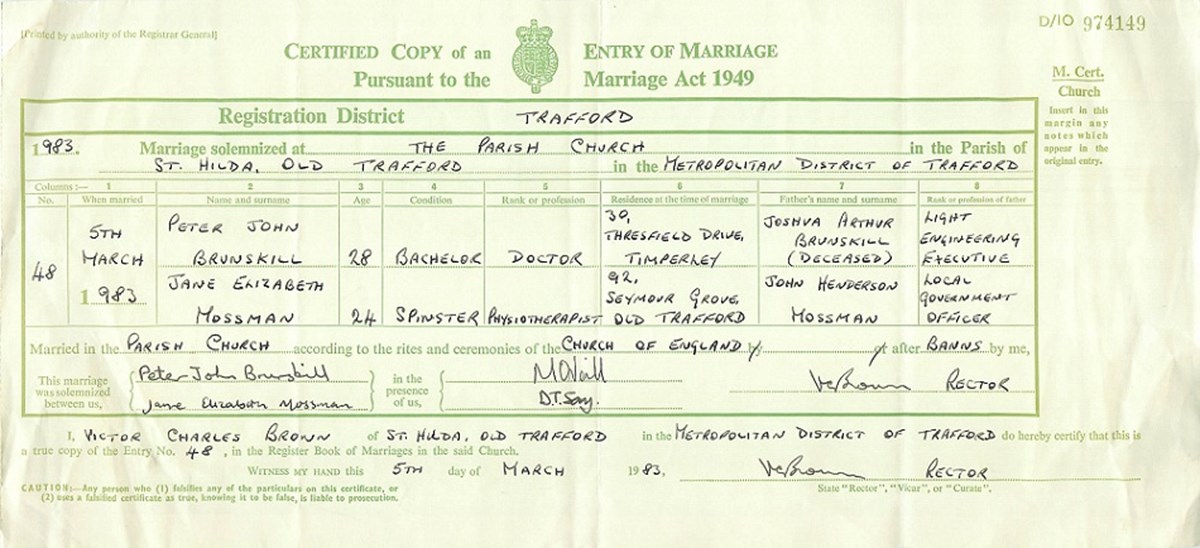 [Printed by authority of the Registrar General]
D/10 974149
CERTIFIED COPY of an ENTRY OF MARRIAGE
Pursuant to the Marriage Act 1949
M. Cert.
Church
Insert in this
margin any
notes which
appear in the
original entry.
Registration District TRAFFORD
1983. Marriage solemnized at THE PARISH CHURCH in the Parish of
ST. HILDA, OLD TRAFFORD in the METROPOLITAN DISTRICT OF TRAFFORD
Columns :— 1 2 3 4 5 6 7 8
No. When married Name and surname Age Condition Rank or profession Residence at the time of marriage Father's name and surname Rank or profession of father
48
5TH
MARCH
1983
PETER JOHN
BRUNSKILL
28
BACHELOR
DOCTOR
30,
THRESFIELD DRIVE,
TIMPERLEY
JOSHUA ARTHUR
BRUNSKILL
(DECEASED)
LIGHT
ENGINEERING
EXECUTIVE
JANE ELIZABETH
MOSSMAN
24
SPINSTER
PHYSIOTHERAPIST
92,
SEYMOUR GROVE,
OLD TRAFFORD
JOHN HENDERSON
MOSSMAN
LOCAL
GOVERNMENT
OFFICER
Married in the PARISH CHURCH according to the rites and ceremonies of the CHURCH OF ENGLAND by or after BANNS by me,
This marriage
was solemnized
between us,
Peter John Brunskill
Jane Elizabeth Mossman
in the
presence
of us,
RECTOR
I, VICTOR CHARLES BROWN of ST. HILDA, OLD TRAFFORD in the METROPOLITAN DISTRICT OF TRAFFORD do hereby certify that this is
a true copy of the Entry No. 48, in the Register Book of Marriages in the said Church.
WITNESS MY HAND this 5TH day of MARCH 1983, VCBrown RECTOR
CAUTION:—Any person who (1) falsifies any of the particulars on this certificate, or
(2) uses a falsified certificate as true, knowing it to be false, is liable to prosecution.
State "Rector", "Vicar", or "Curate".